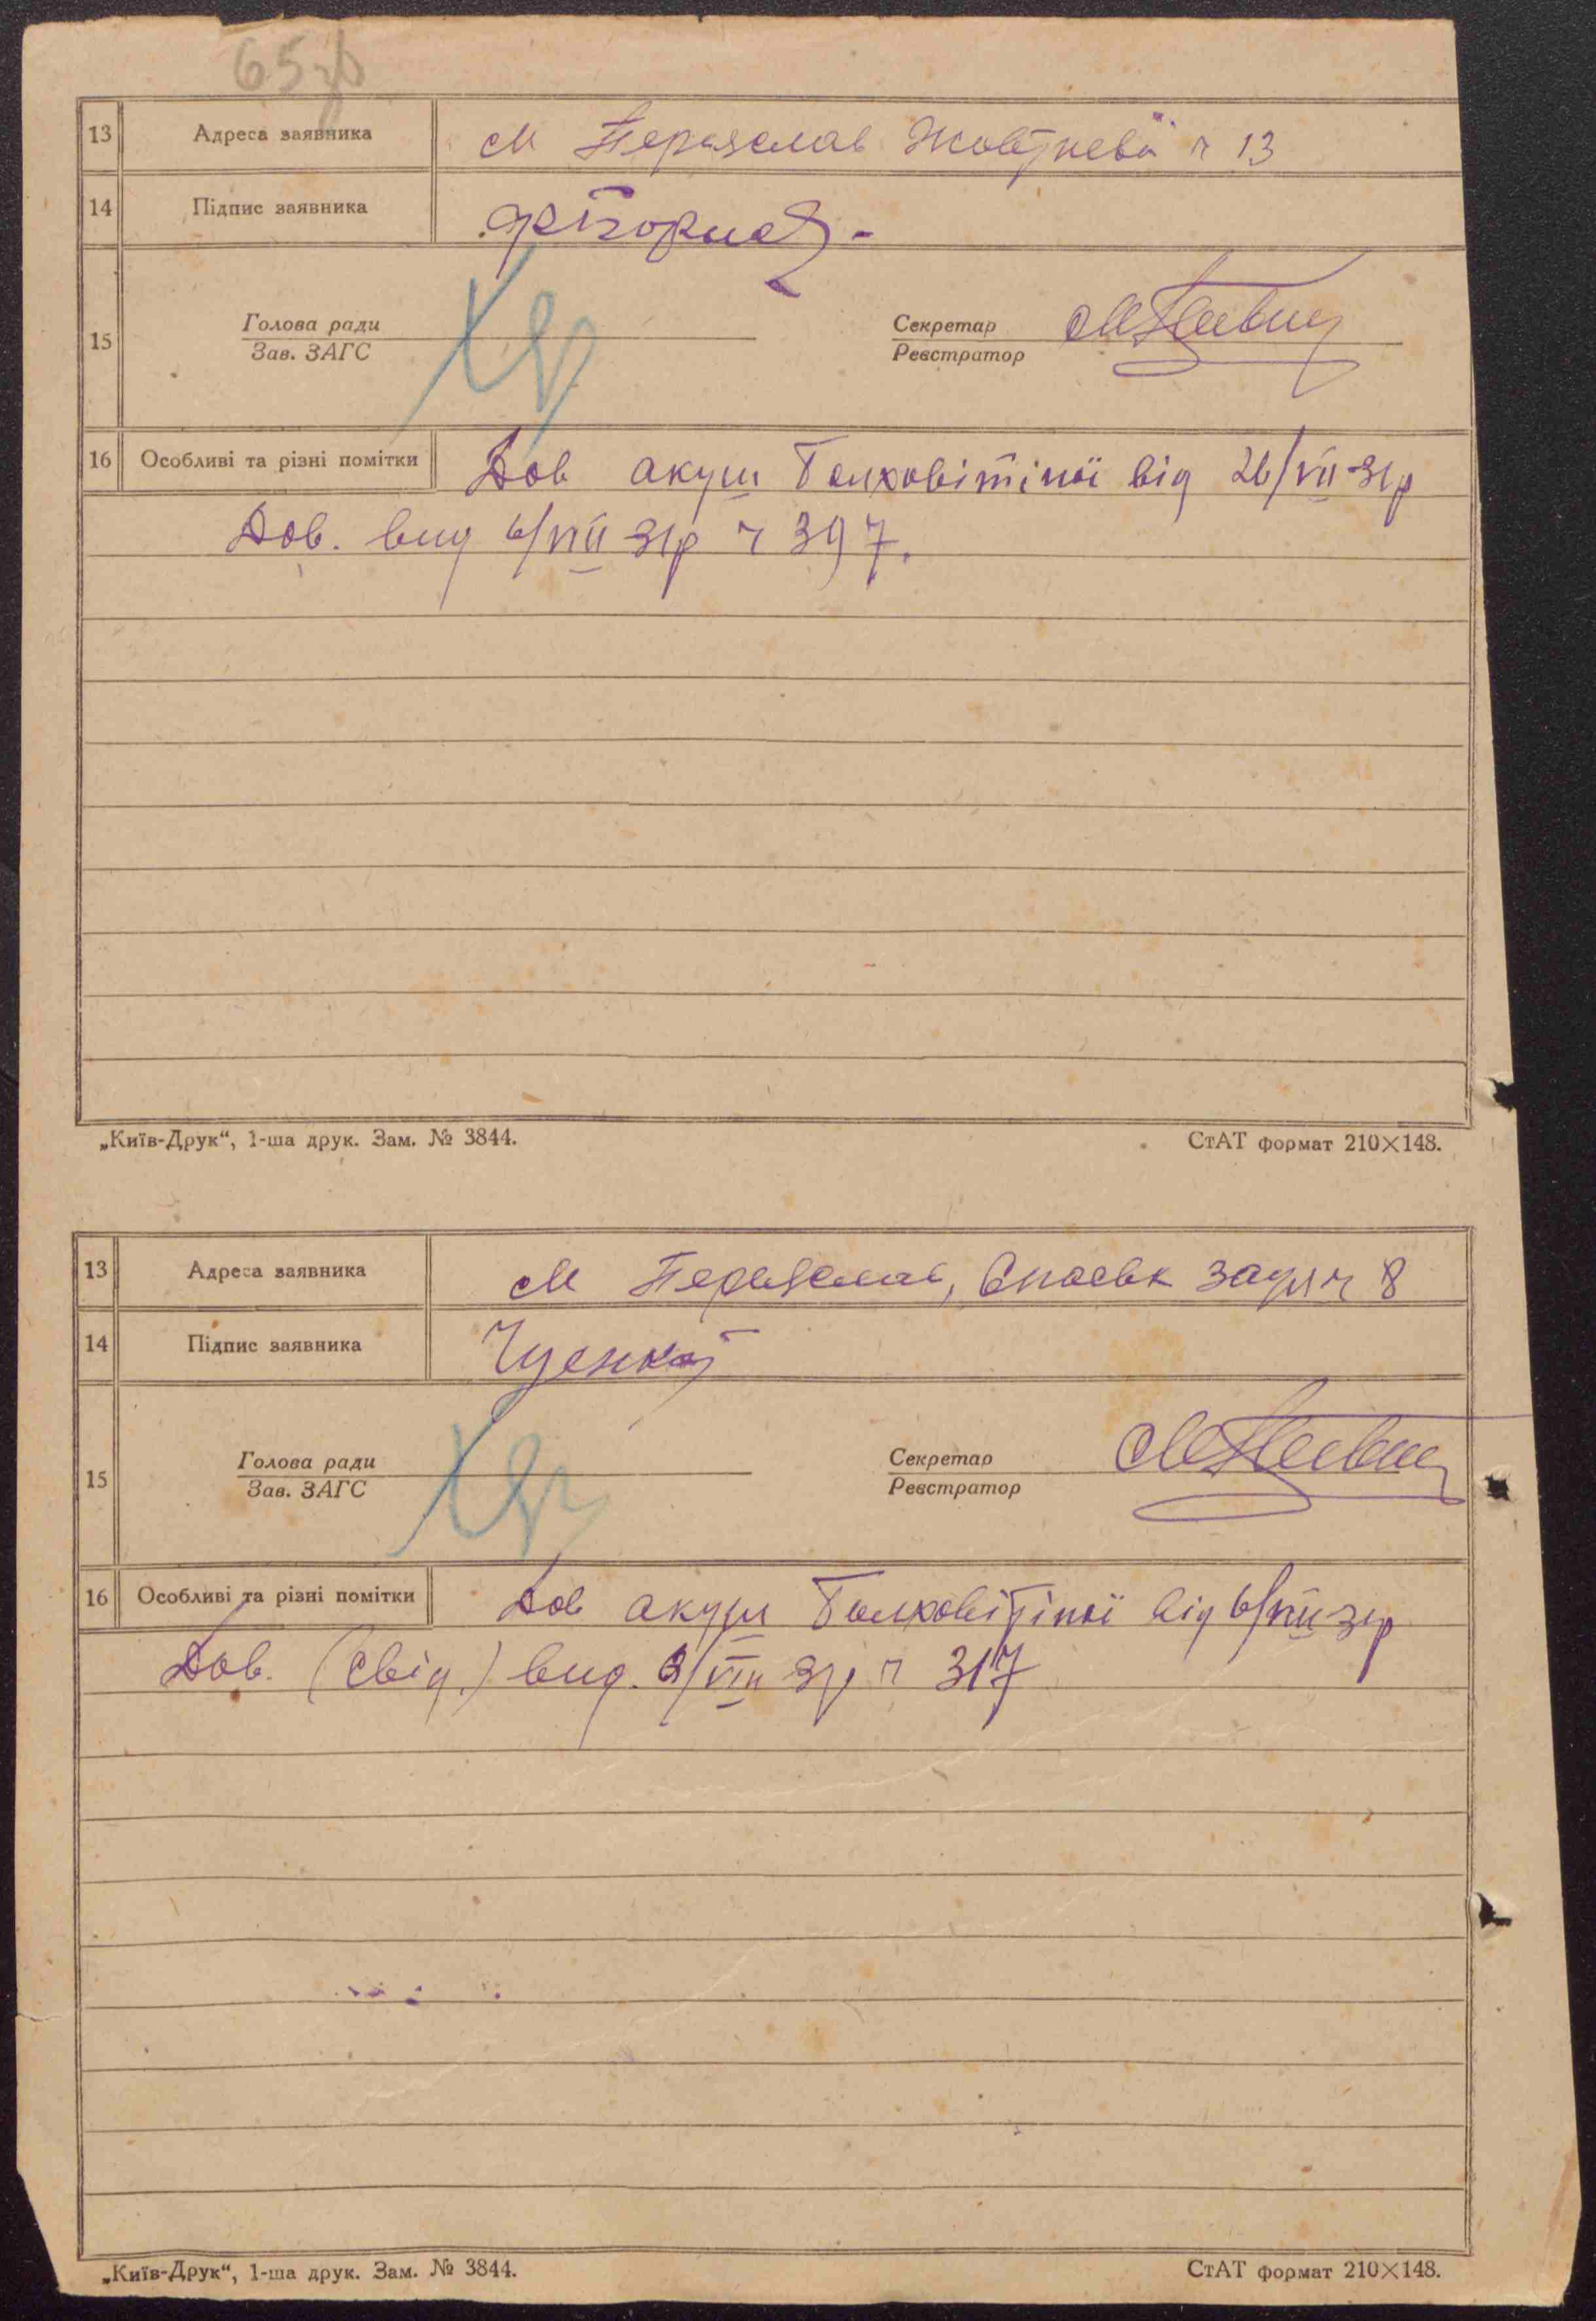 65зв
13 Адреса заявника м Переяслав Жовтнева ч 13
14 Підпис заявника
15 Голова ради
Зав. ЗАГС
Секретар
Реєстратор
16 Особливі та різні помітки Дов акуш Болховітіної від 26/VII-31р
Дов. вид 6/VIII 31р ч 397.
„Київ-Друк“, 1-ша друк. Зам. № 3844. СтАТ формат 210×148.
13 Адреса заявника м Переяслав, ч 8
14 Підпис заявника
15 Голова ради
Зав. ЗАГС
Секретар
Реєстратор
16 Особливі та різні помітки Дов акуш Болховітіної від 6/VIII 31р
Дов. (свід.) вид. /VIII 31р ч 317
„Київ-Друк“, 1-ша друк. Зам. № 3844. СтАТ формат 210×148.